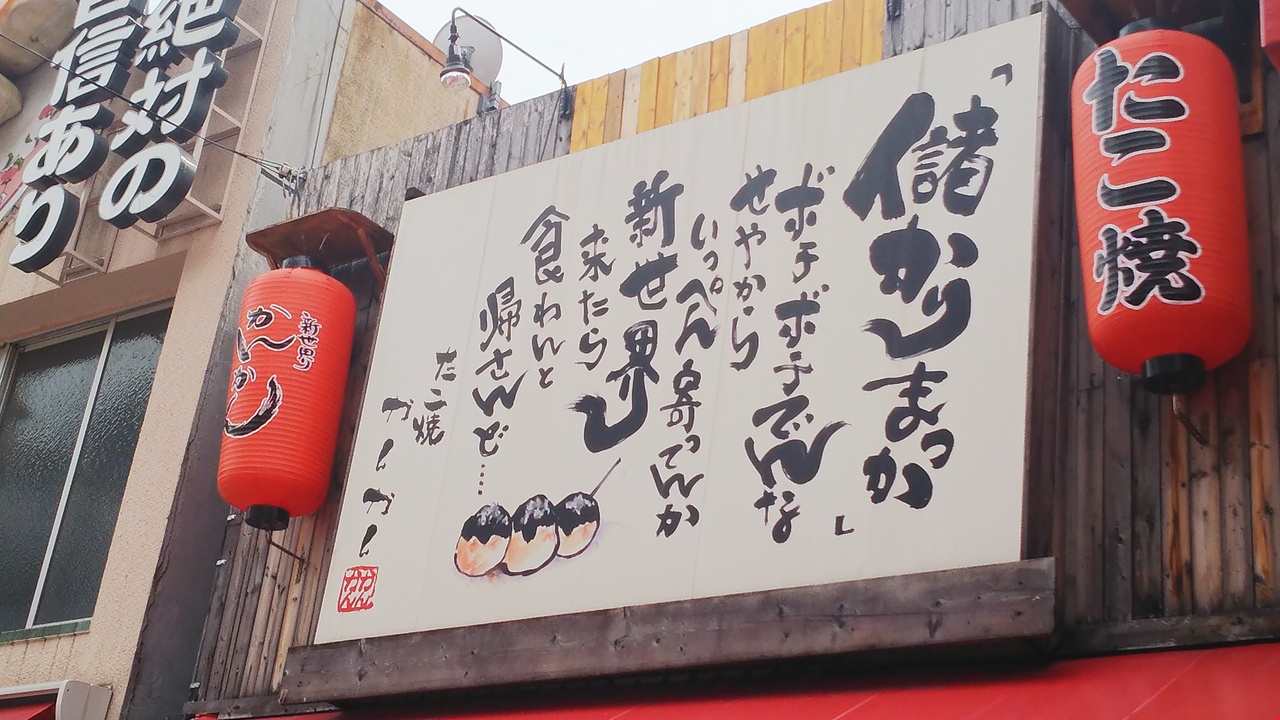 たこ焼
「儲かりまっか
ボチボチでんな」
せやから
いっぺん寄ってんか
新世界し
来たら
食わんと
帰さんど…
たこ焼
かんかん
新世界
かんかん
絶対の
自信あり